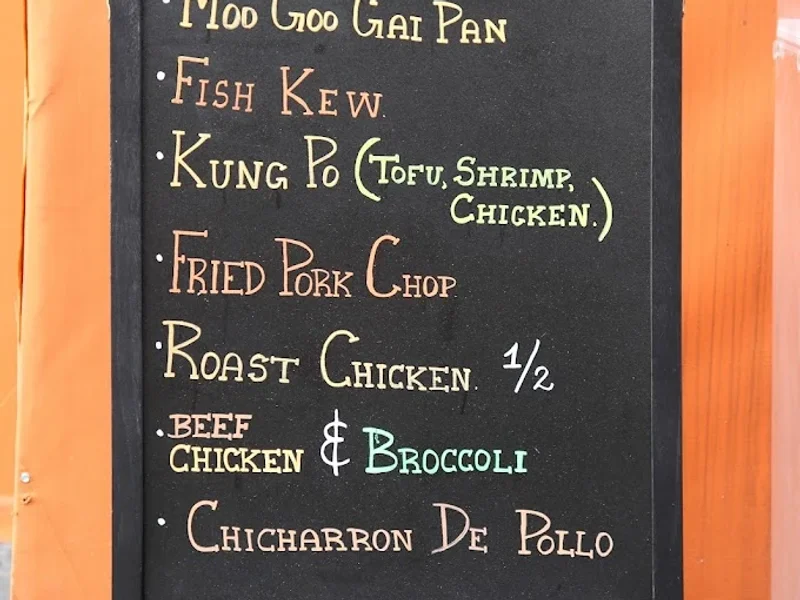 · Moo Goo Gai Pan
· Fish Kew.
· Kung Po (Tofu, Shrimp,
Chicken.)
· Fried Pork Chop
· Roast Chicken. 1/2
· BEEF
CHICKEN & Broccoli
· Chicharron De Pollo